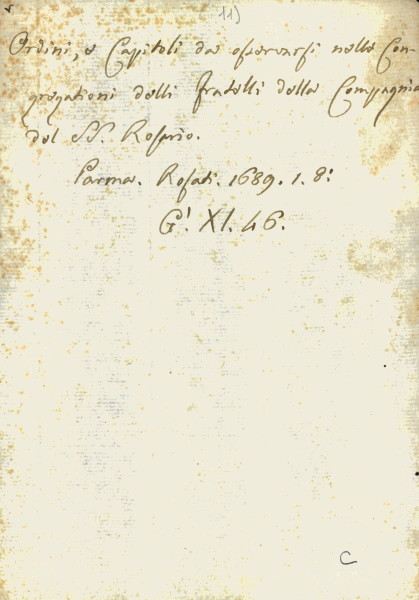 11)
Ordini, e Capitoli da osservarsi nelle Con-
gregationi delli fratelli della Compagnia
del SS. Rosario.
Parma. Rosati. 1689. 1. 8:
G! XI. 46.
C